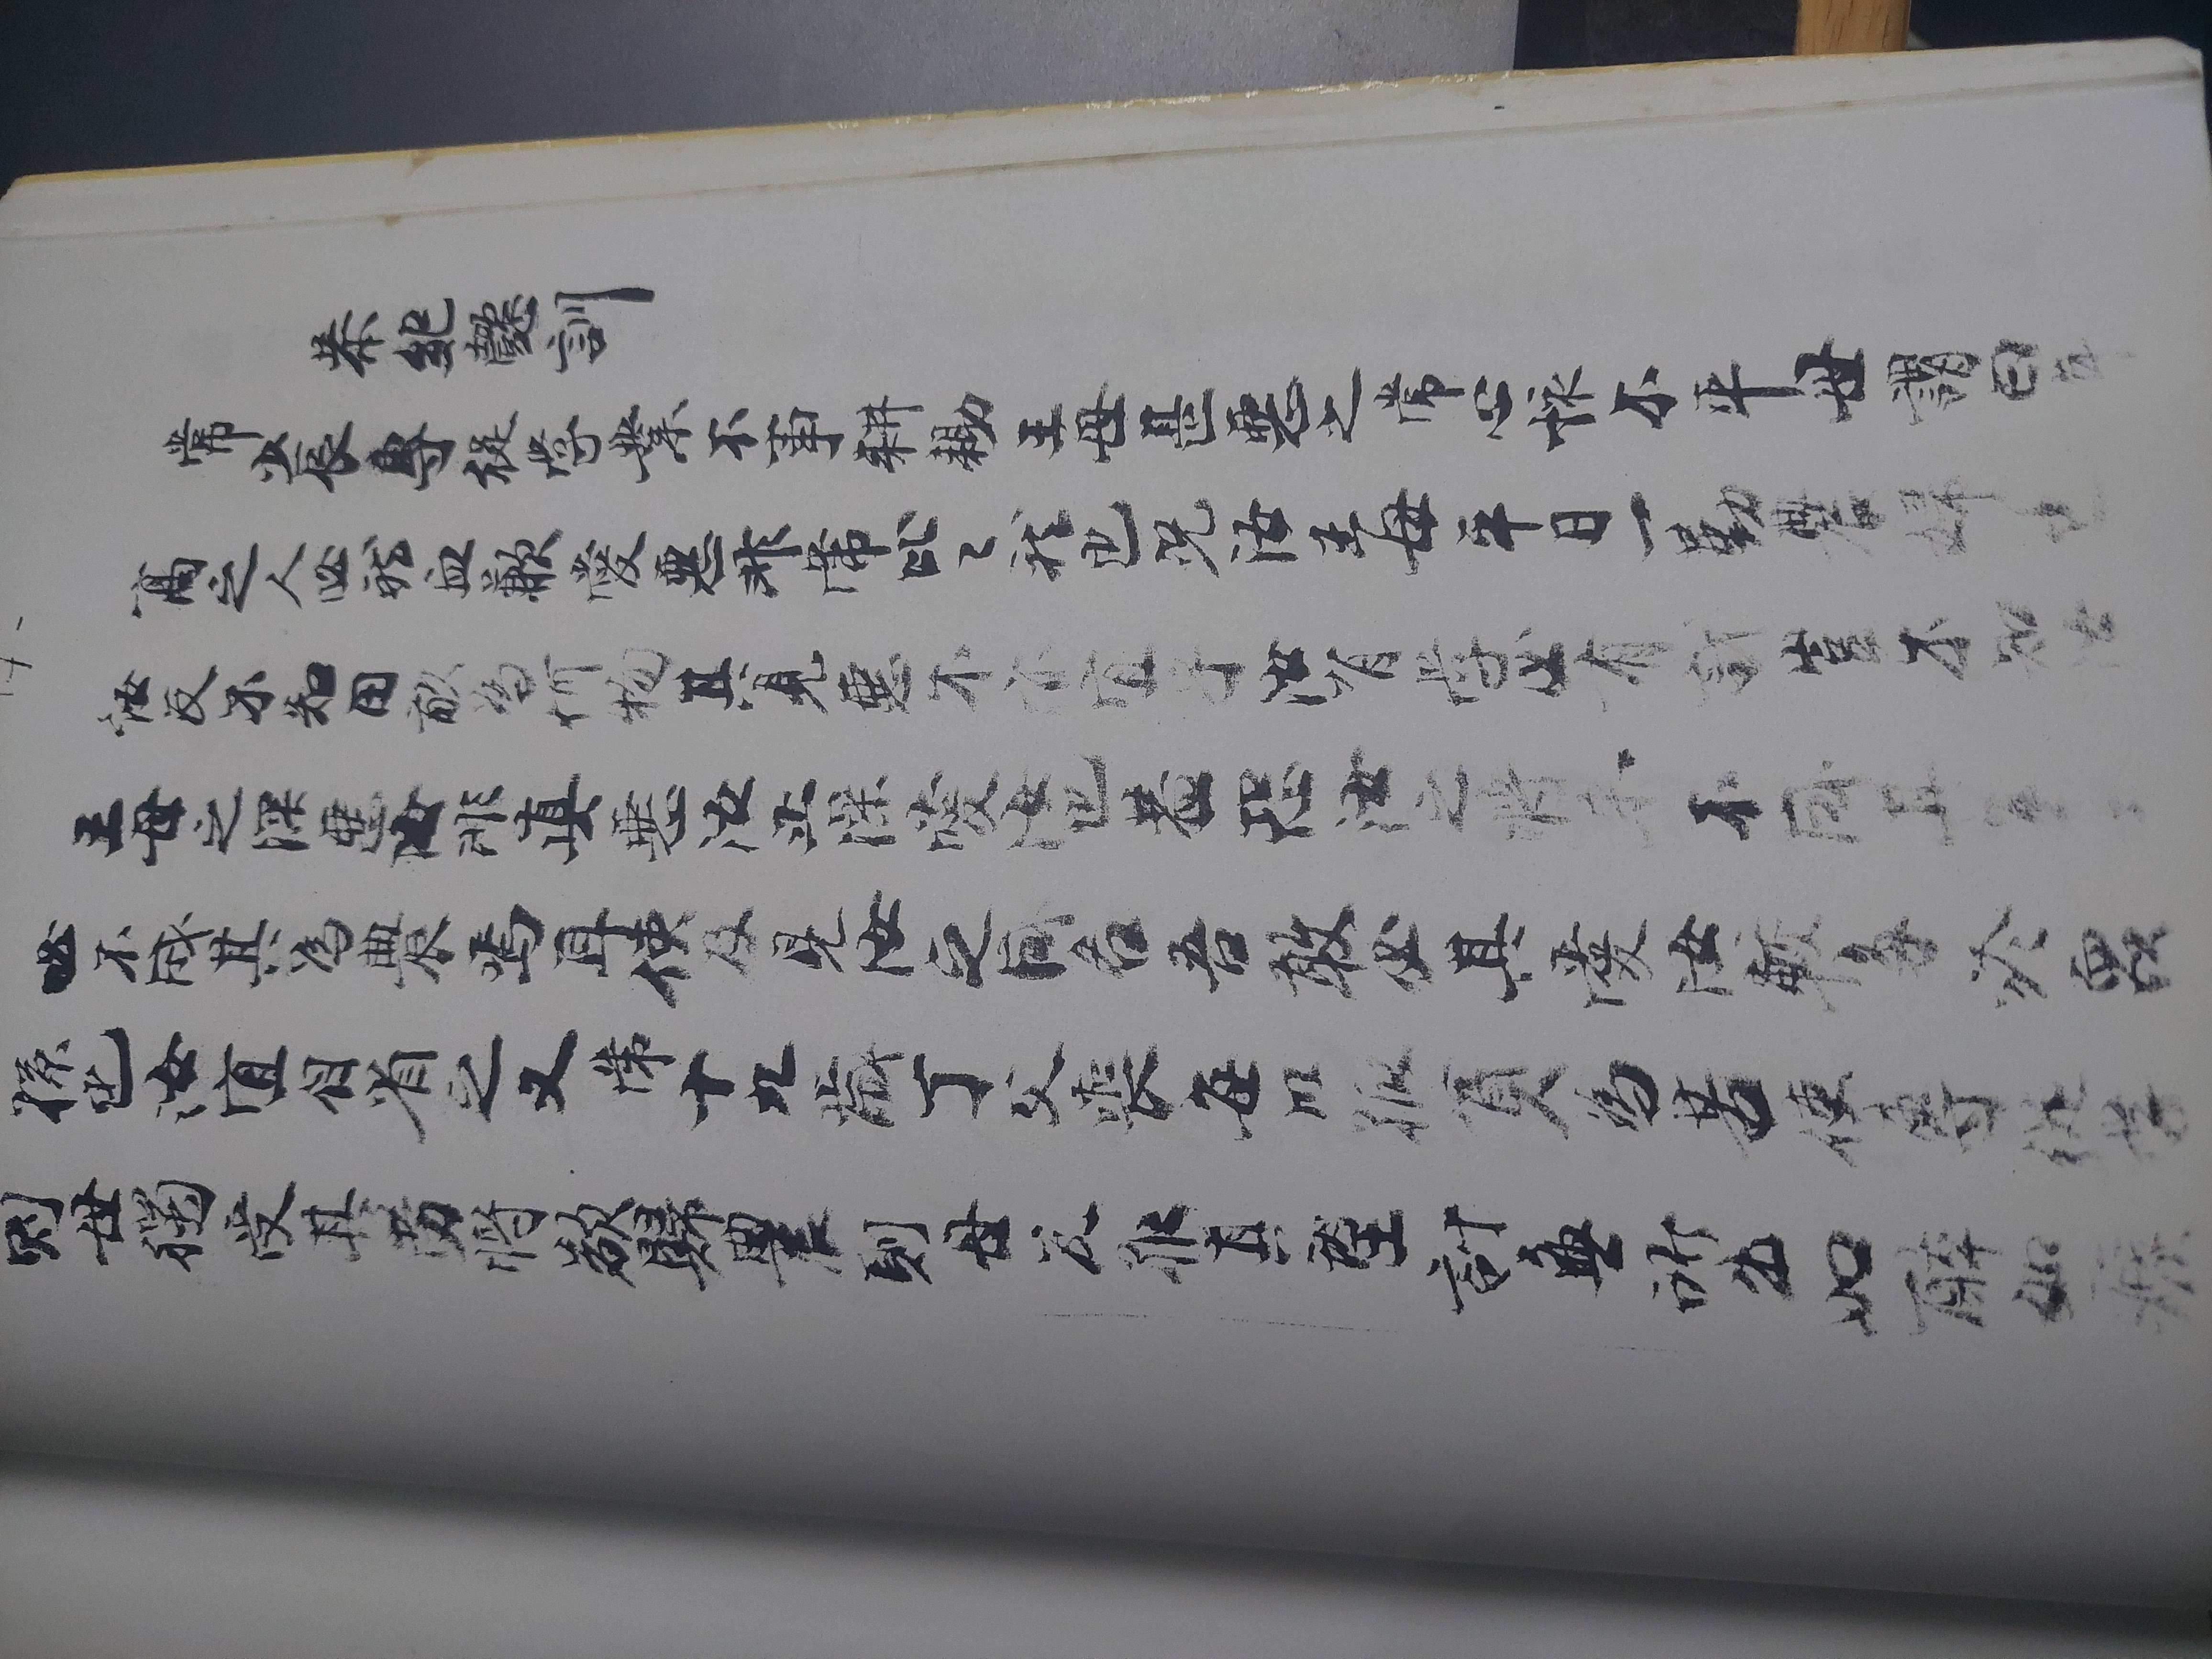 恭紀懿訓
常少長專從学業不事耕耡王母甚惡之常心怵不平母謂曰年
高之人必就血歉愛惡非常比〻就也況汝王母平日一勤農婦也
汝反不知田畝為何物其見惡不亦宜乎汝肯学必有識豈不知汝
王母之深惡汝非真惡汝正深愛汝也甚恐汝之將来不同其
必不成其為農焉耳使及見汝之成名吾敢必其愛汝較多於眾
孫也汝宜自省之又常十九歲丁父喪每以孤負為苦使專從学
則母獨受其勞將欲歸農則母必孤其望計無所出如醉如癡